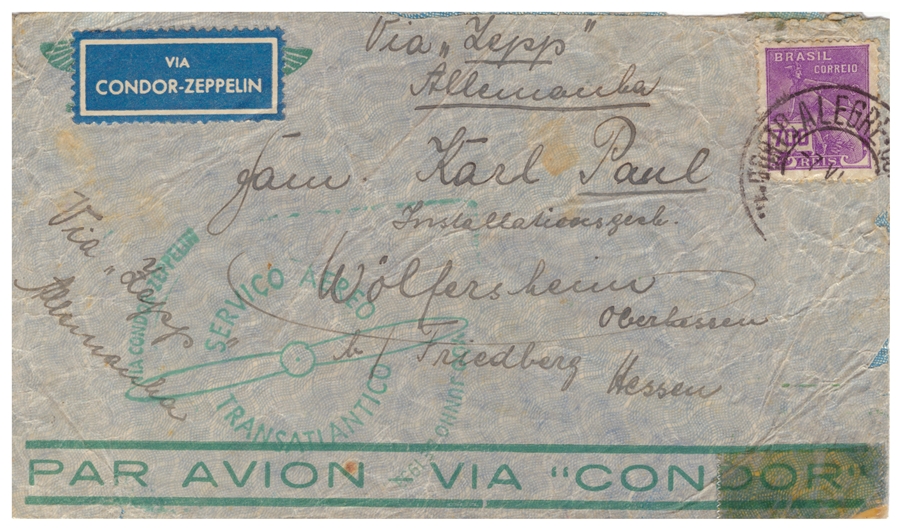 VIA
CONDOR-ZEPPELIN
Via „Zepp"
Allemanha
BRASIL
CORREIO
700
REIS
PORTO ALEGRE
Fam. Karl Paul
Installationsgesch.
Wölfersheim
Oberhessen
b/ Friedberg
Hessen
Via „Zepp"
Allemanha
VIA CONDOR-ZEPPELIN
SERVIÇO AEREO
TRANSATLANTICO
PAR AVION - VIA "CONDOR"